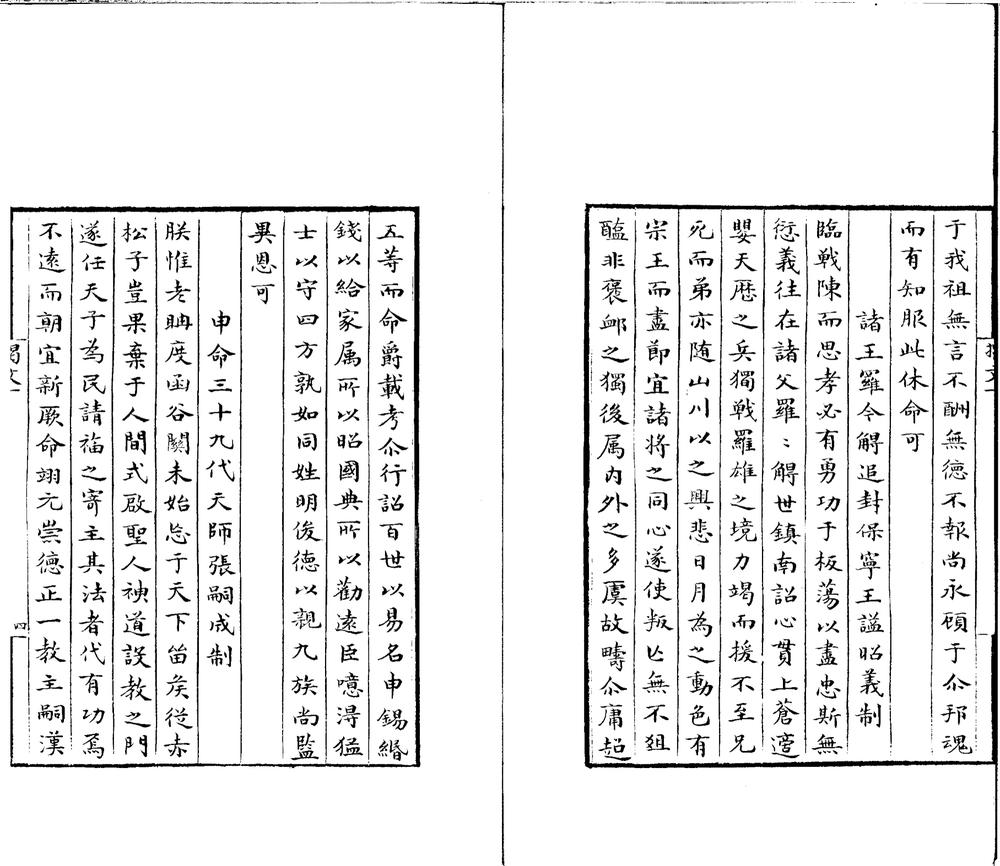 于我祖無言不酬無德不報尚永顧于尒邦魂
而有知服此休命可
諸王羅令觧追封保寧王諡昭義制
臨戰陳而思孝必有勇功于板蕩以盡忠斯無
愆義往在諸父羅〻觧世鎮南詔心貫上蒼遭
嬰天曆之兵獨戰羅雄之境力竭而援不至兄
死而弟亦随山川以之興悲日月為之動色有
宗王而盡節宜諸將之同心遂使叛亾無不菹
醢非褒衈之獨後属内外之多虞故疇尒庸超
五等而命爵載考尒行詔百世以易名申錫緡
錢以給家属所以昭國典所以勸遠臣噫淂猛
士以守四方孰如同姓明俊德以親九族尚監
異恩可
申命三十九代天師張嗣成制
朕惟老聃度函谷關未始忘于天下畄侯從赤
松子豈果棄于人間式啟聖人神道設教之門
遂任天子為民請福之寄主其法者代有功焉
不遠而朝宜新厥命翊元崇德正一教主嗣漢
四